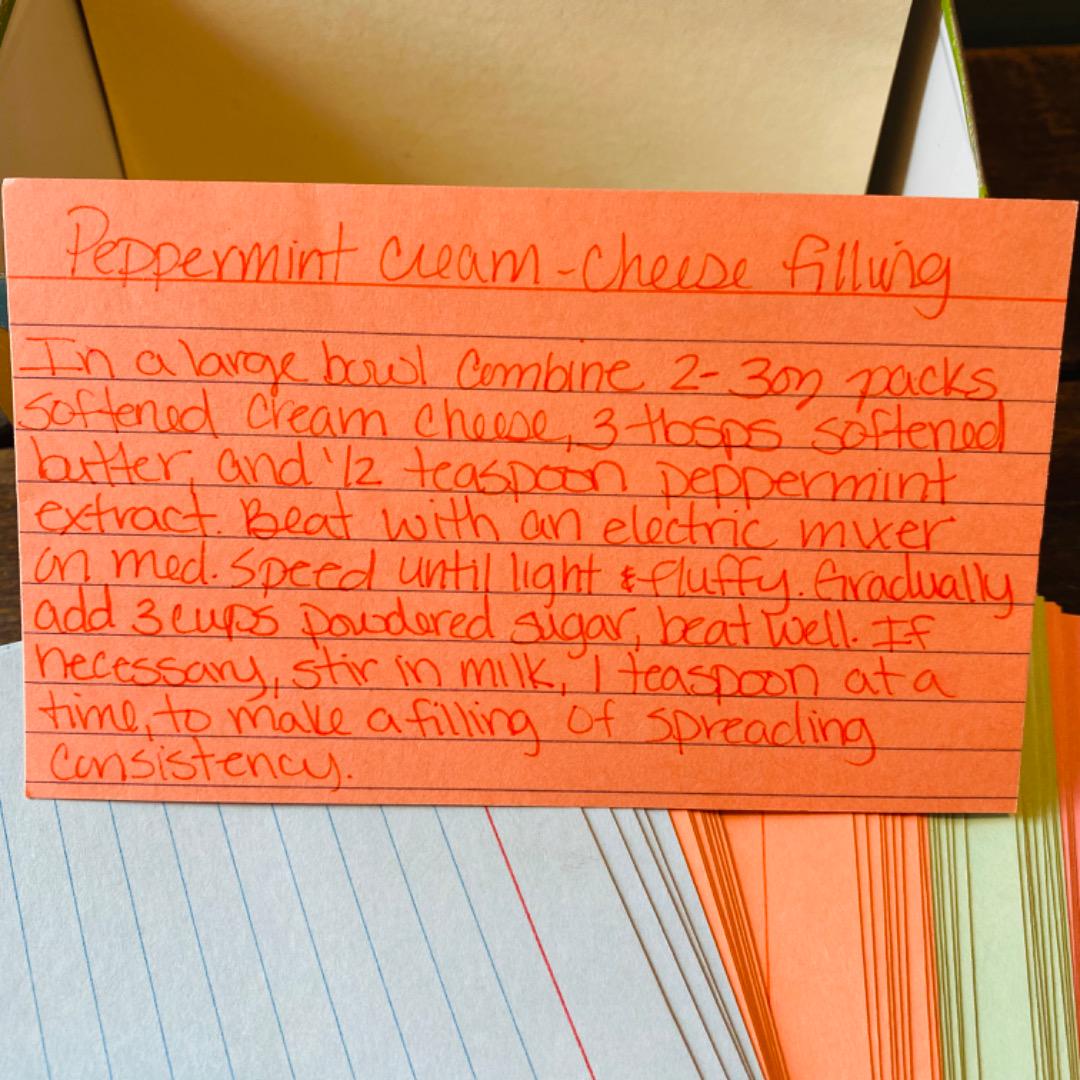 Peppermint cream-cheese filling
In a large bowl combine 2-3oz packs
softened cream cheese, 3 tbsps softened
butter, and 1/2 teaspoon peppermint
extract. Beat with an electric mixer
on med. speed until light & fluffy. Gradually
add 3 cups powdered sugar, beat well. If
necessary, stir in milk, 1 teaspoon at a
time, to make a filling of spreading
consistency.